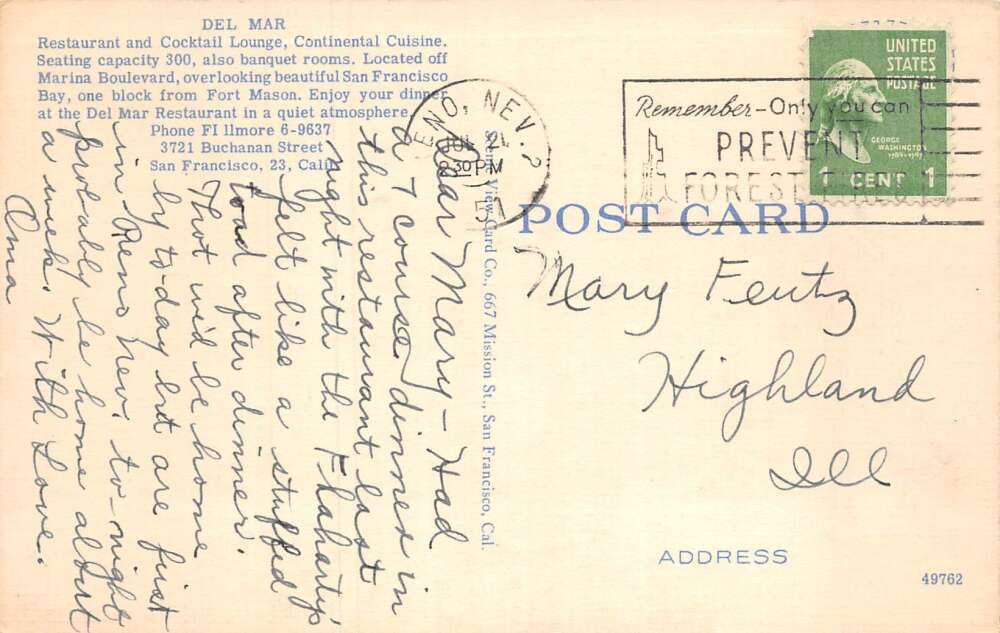 DEL MAR
Restaurant and Cocktail Lounge, Continental Cuisine.
Seating capacity 300, also banquet rooms. Located off
Marina Boulevard, overlooking beautiful San Francisco
Bay, one block from Fort Mason. Enjoy your dinner
at the Del Mar Restaurant in a quiet atmosphere.
Phone FI llmore 6-9637
3721 Buchanan Street
San Francisco, 23, Calif.
Dear Mary – Had
a 7 course dinner in
this restaurant last
night with the Flaharty's
felt like a stuffed
toad after dinner.
That we'd be home
by to-day but are first
in Reno Nev. to-night
probably be home about
a week. With Love.
Oma
Scenic View Card Co., 667 Mission St., San Francisco, Cal.
NEV.
30 PM
Remember – Only you can
PREVENT
FOREST
UNITED
STATES
POSTAGE
GEORGE
WASHINGTON
1 CENT 1
POST CARD
Mary Feutz
Highland
Ill
ADDRESS
49762